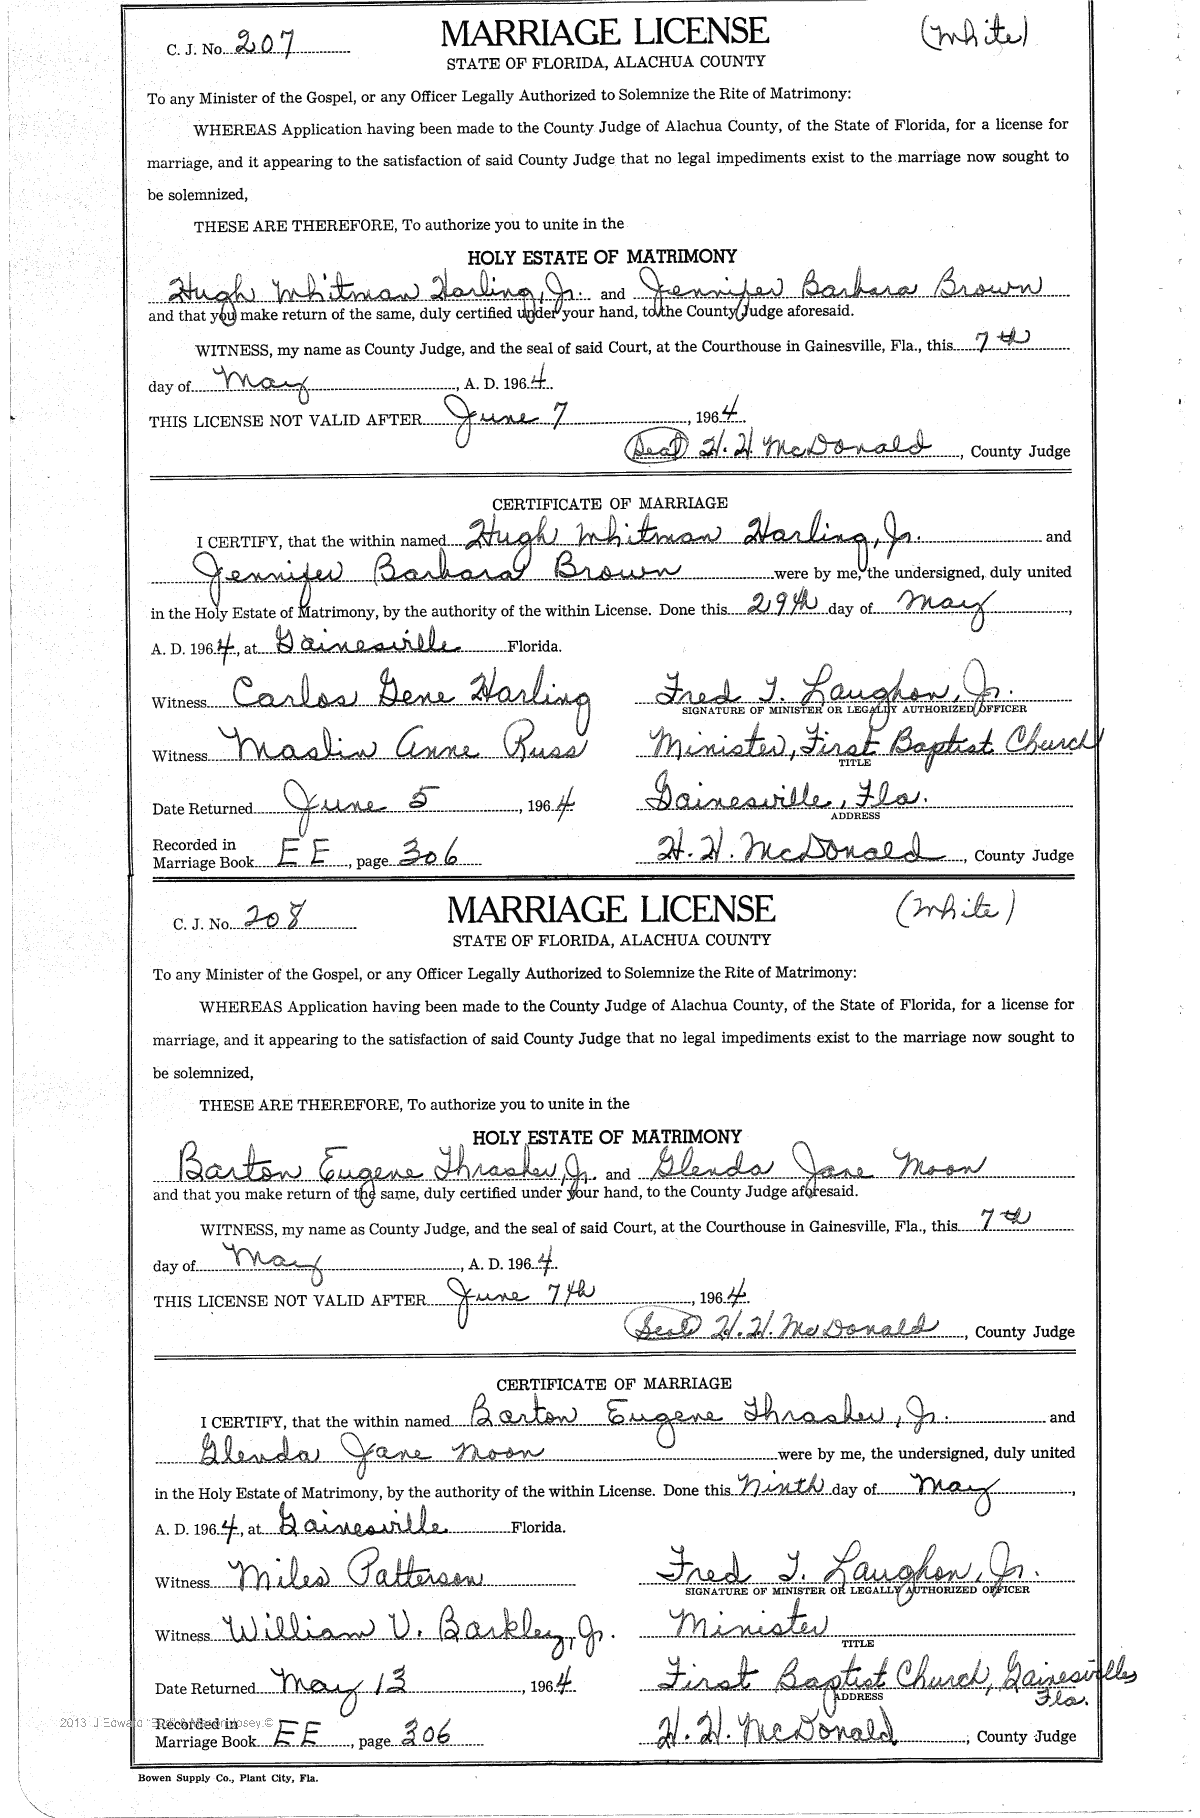 C. J. No. 207
MARRIAGE LICENSE
(White)
STATE OF FLORIDA, ALACHUA COUNTY
To any Minister of the Gospel, or any Officer Legally Authorized to Solemnize the Rite of Matrimony:
WHEREAS Application having been made to the County Judge of Alachua County, of the State of Florida, for a license for
marriage, and it appearing to the satisfaction of said County Judge that no legal impediments exist to the marriage now sought to
be solemnized,
THESE ARE THEREFORE, To authorize you to unite in the
HOLY ESTATE OF MATRIMONY
Hugh Whitman Harling, Jr. and Jennifer Barbara Brown
and that you make return of the same, duly certified under your hand, to the County Judge aforesaid.
WITNESS, my name as County Judge, and the seal of said Court, at the Courthouse in Gainesville, Fla., this 7th
day of May, A. D. 1964.
THIS LICENSE NOT VALID AFTER June 7, 1964.
(Seal) H. H. McDonald, County Judge
CERTIFICATE OF MARRIAGE
I CERTIFY, that the within named Hugh Whitman Harling, Jr. and
Jennifer Barbara Brown were by me, the undersigned, duly united
in the Holy Estate of Matrimony, by the authority of the within License. Done this 29th day of May,
A. D. 1964, at Gainesville Florida.
Witness Carlos Gene Harling Fred T. Laughon, Jr.
SIGNATURE OF MINISTER OR LEGALLY AUTHORIZED OFFICER
Witness Maslin Anne Russ Minister, First Baptist Church
TITLE
Date Returned June 5, 1964 Gainesville, Fla.
ADDRESS
Recorded in
Marriage Book EE, page 306 H. H. McDonald, County Judge
C. J. No. 208
MARRIAGE LICENSE
(White)
STATE OF FLORIDA, ALACHUA COUNTY
To any Minister of the Gospel, or any Officer Legally Authorized to Solemnize the Rite of Matrimony:
WHEREAS Application having been made to the County Judge of Alachua County, of the State of Florida, for a license for
marriage, and it appearing to the satisfaction of said County Judge that no legal impediments exist to the marriage now sought to
be solemnized,
THESE ARE THEREFORE, To authorize you to unite in the
HOLY ESTATE OF MATRIMONY
Barton Eugene Thrasher, Jr. and Glenda Jane Moon
and that you make return of the same, duly certified under your hand, to the County Judge aforesaid.
WITNESS, my name as County Judge, and the seal of said Court, at the Courthouse in Gainesville, Fla., this 7th
day of May, A. D. 1964.
THIS LICENSE NOT VALID AFTER June 7th, 1964.
(Seal) H. H. McDonald, County Judge
CERTIFICATE OF MARRIAGE
I CERTIFY, that the within named Barton Eugene Thrasher, Jr. and
Glenda Jane Moon were by me, the undersigned, duly united
in the Holy Estate of Matrimony, by the authority of the within License. Done this Ninth day of May,
A. D. 1964, at Gainesville Florida.
Witness Miles Patterson Fred T. Laughon, Jr.
SIGNATURE OF MINISTER OR LEGALLY AUTHORIZED OFFICER
Witness William V. Barkley, Jr. Minister
TITLE
Date Returned May 13, 1964 First Baptist Church, Gainesville,
ADDRESS
Fla.
2013 J Edward
Recorded in
Marriage Book EE, page 306 H. H. McDonald, County Judge
Bowen Supply Co., Plant City, Fla.